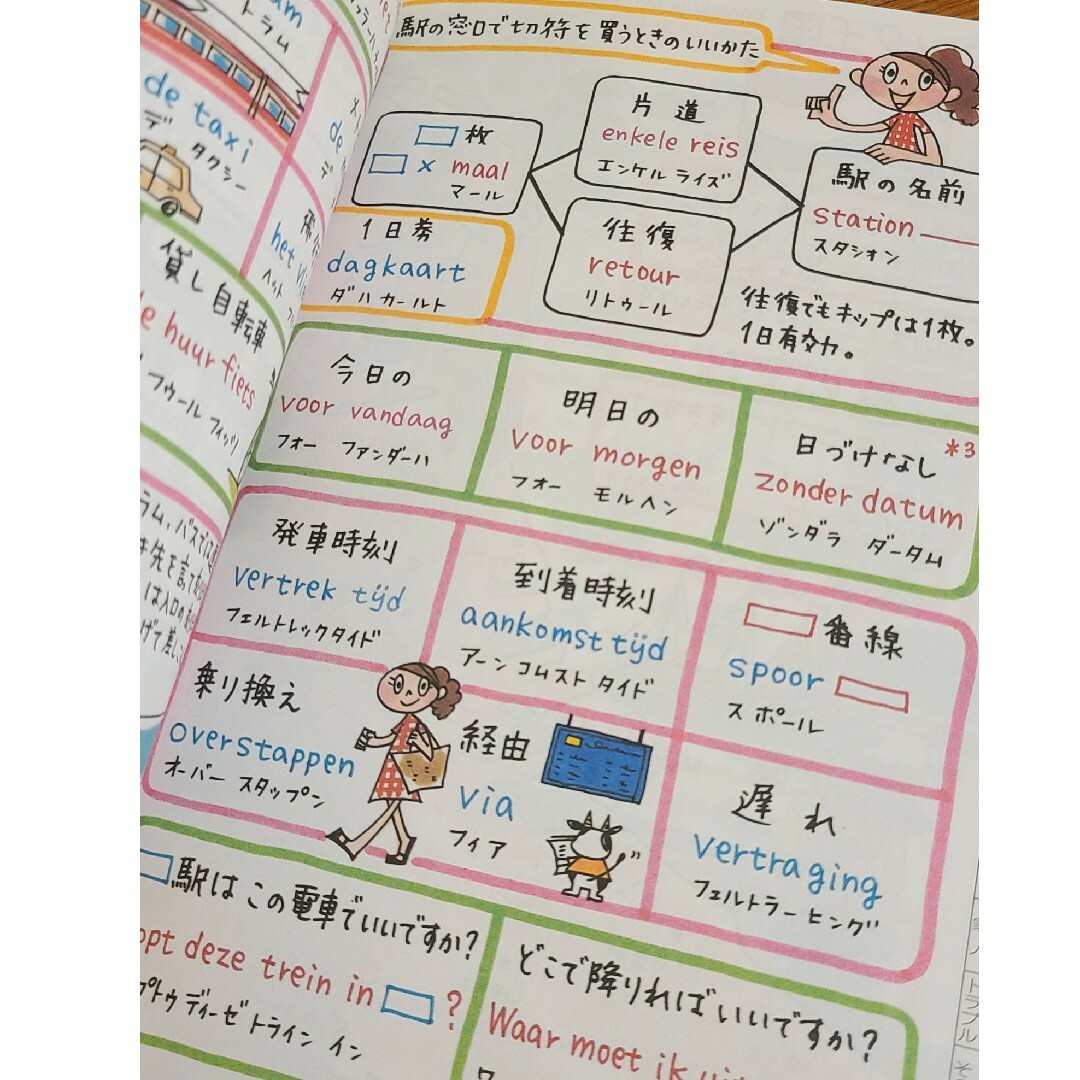 トラム
de taxi
デ タクシー
貸し自転車
huur fiets
フゥール フィッツ
駅の窓口で切符を買うときのいいかた
枚
x maal
マール
片道
enkele reis
エンケル ライズ
往復
retour
リトゥール
駅の名前
station
スタシオン
1日券
dagkaart
ダハ カールト
往復でもキップは1枚。
1日有効。
今日の
voor vandaag
フォー ファンダーハ
明日の
voor morgen
フォー モルヘン
日づけなし *3
zonder datum
ゾンダラ ダータム
発車時刻
vertrek tijd
フェルトレックタイド
到着時刻
aankomst tijd
アーン コムスト タイド
番線
spoor
スポール
乗り換え
overstappen
オーバー スタップン
経由
via
フィア
遅れ
vertraging
フェルトラーヒング
駅はこの電車でいいですか?
opt deze trein in ?
プトゥ ディーゼ トライン イン
どこで降りればいいですか?
Waar moet ik
トラブル